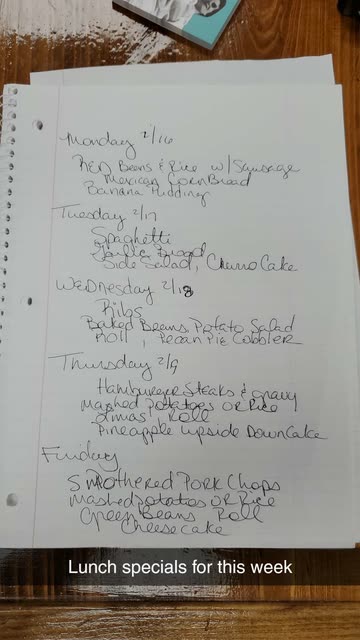 Monday 2/16
RED Beans & Rice w/ Sausage
Mexican CornBread
Banana Pudding
Tuesday 2/17
Spaghetti
Garlic Bread
Side Salad, Churro Cake
WEDNesday 2/18
Ribs
Baked Beans Potato Salad
Roll, Pecan Pie Cobbler
Thursday 2/19
Hamburger Steaks & gravy
Mashed Potatoes OR Rice
Limas Roll
Pineapple Upside Down Cake
Friday
Smothered Pork Chops
Mashed potatoes OR Rice
Green Beans Roll
Cheesecake
Lunch specials for this week